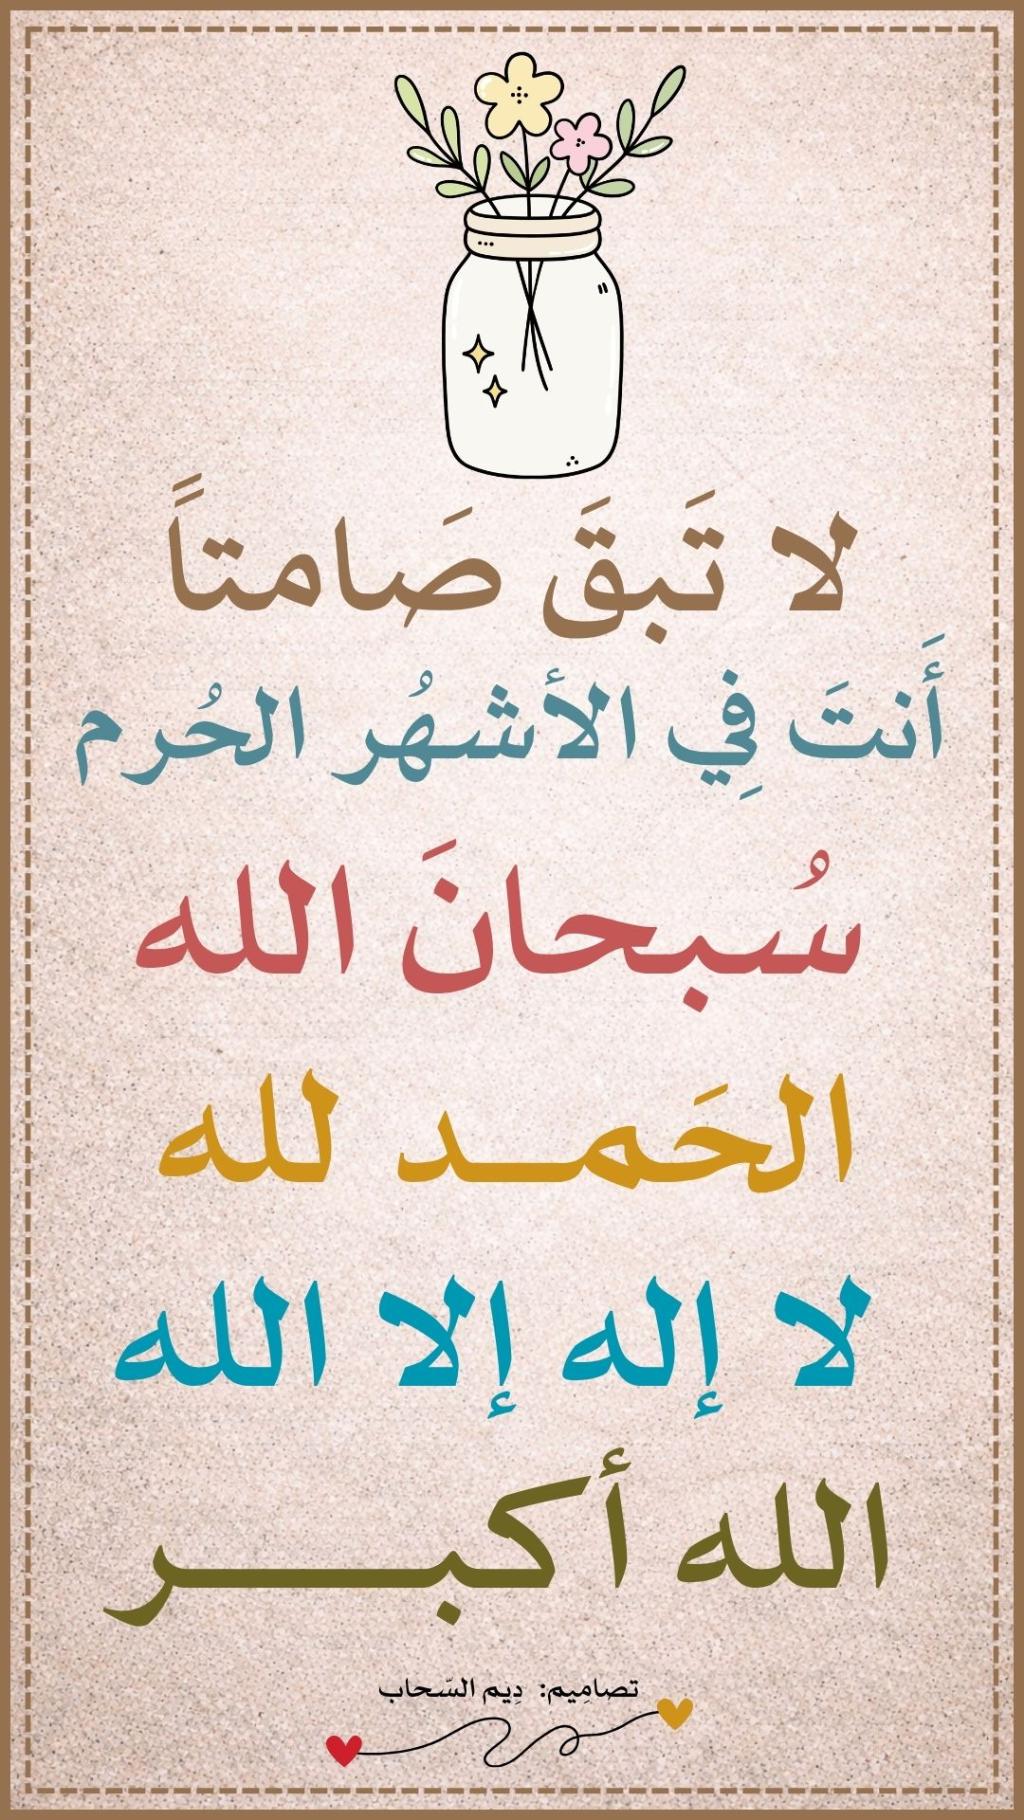 لا تَبقَ صَامتاً
أَنتَ فِي الأشهُر الحُرم
سُبحانَ الله
الحَمـد لله
لا إله إلا الله
الله أكبـــر
تصامِيم: دِيم السّحاب